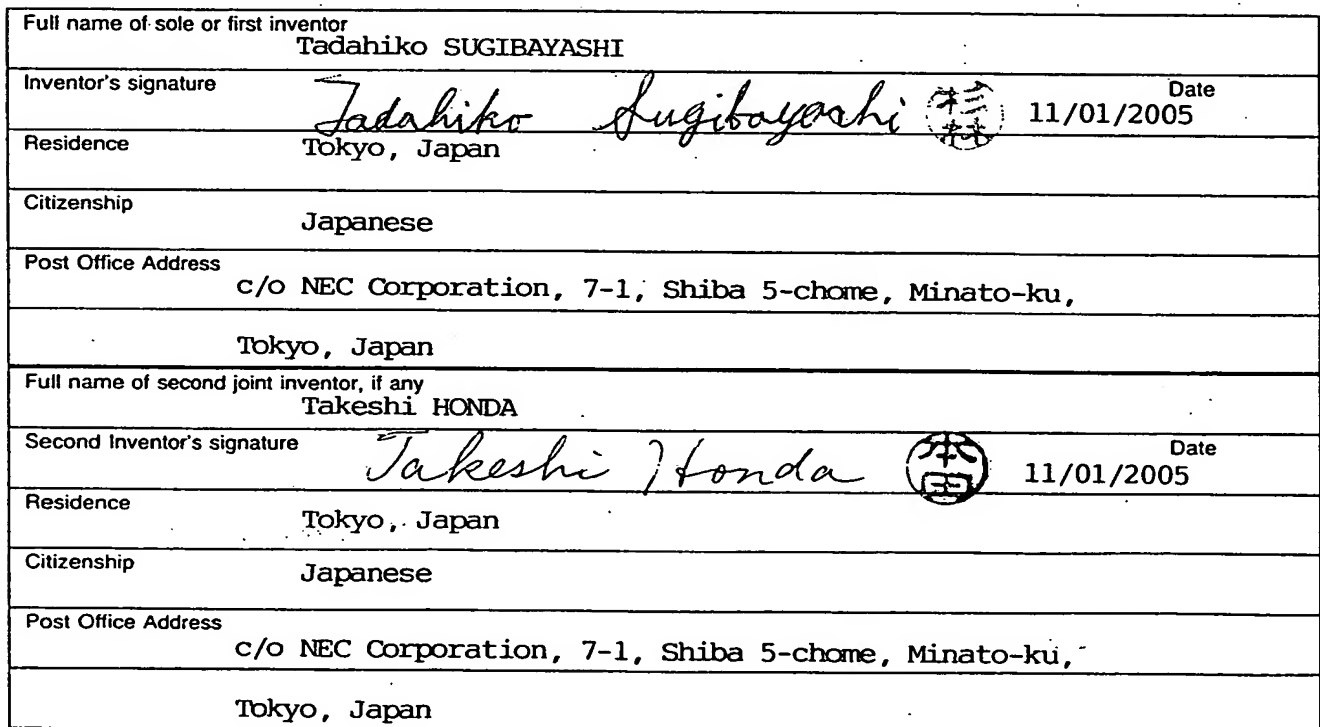 Full name of sole or first inventor
Tadahiko SUGIBAYASHI
Inventor's signature Tadahiko Sugibayashi 杉林 Date
11/01/2005
Residence Tokyo, Japan
Citizenship
Japanese
Post Office Address
c/o NEC Corporation, 7-1, Shiba 5-chome, Minato-ku,
Tokyo, Japan
Full name of second joint inventor, if any
Takeshi HONDA
Second Inventor's signature Takeshi Honda 本田 Date
11/01/2005
Residence
Tokyo, Japan
Citizenship Japanese
Post Office Address
c/o NEC Corporation, 7-1, Shiba 5-chome, Minato-ku,
Tokyo, Japan